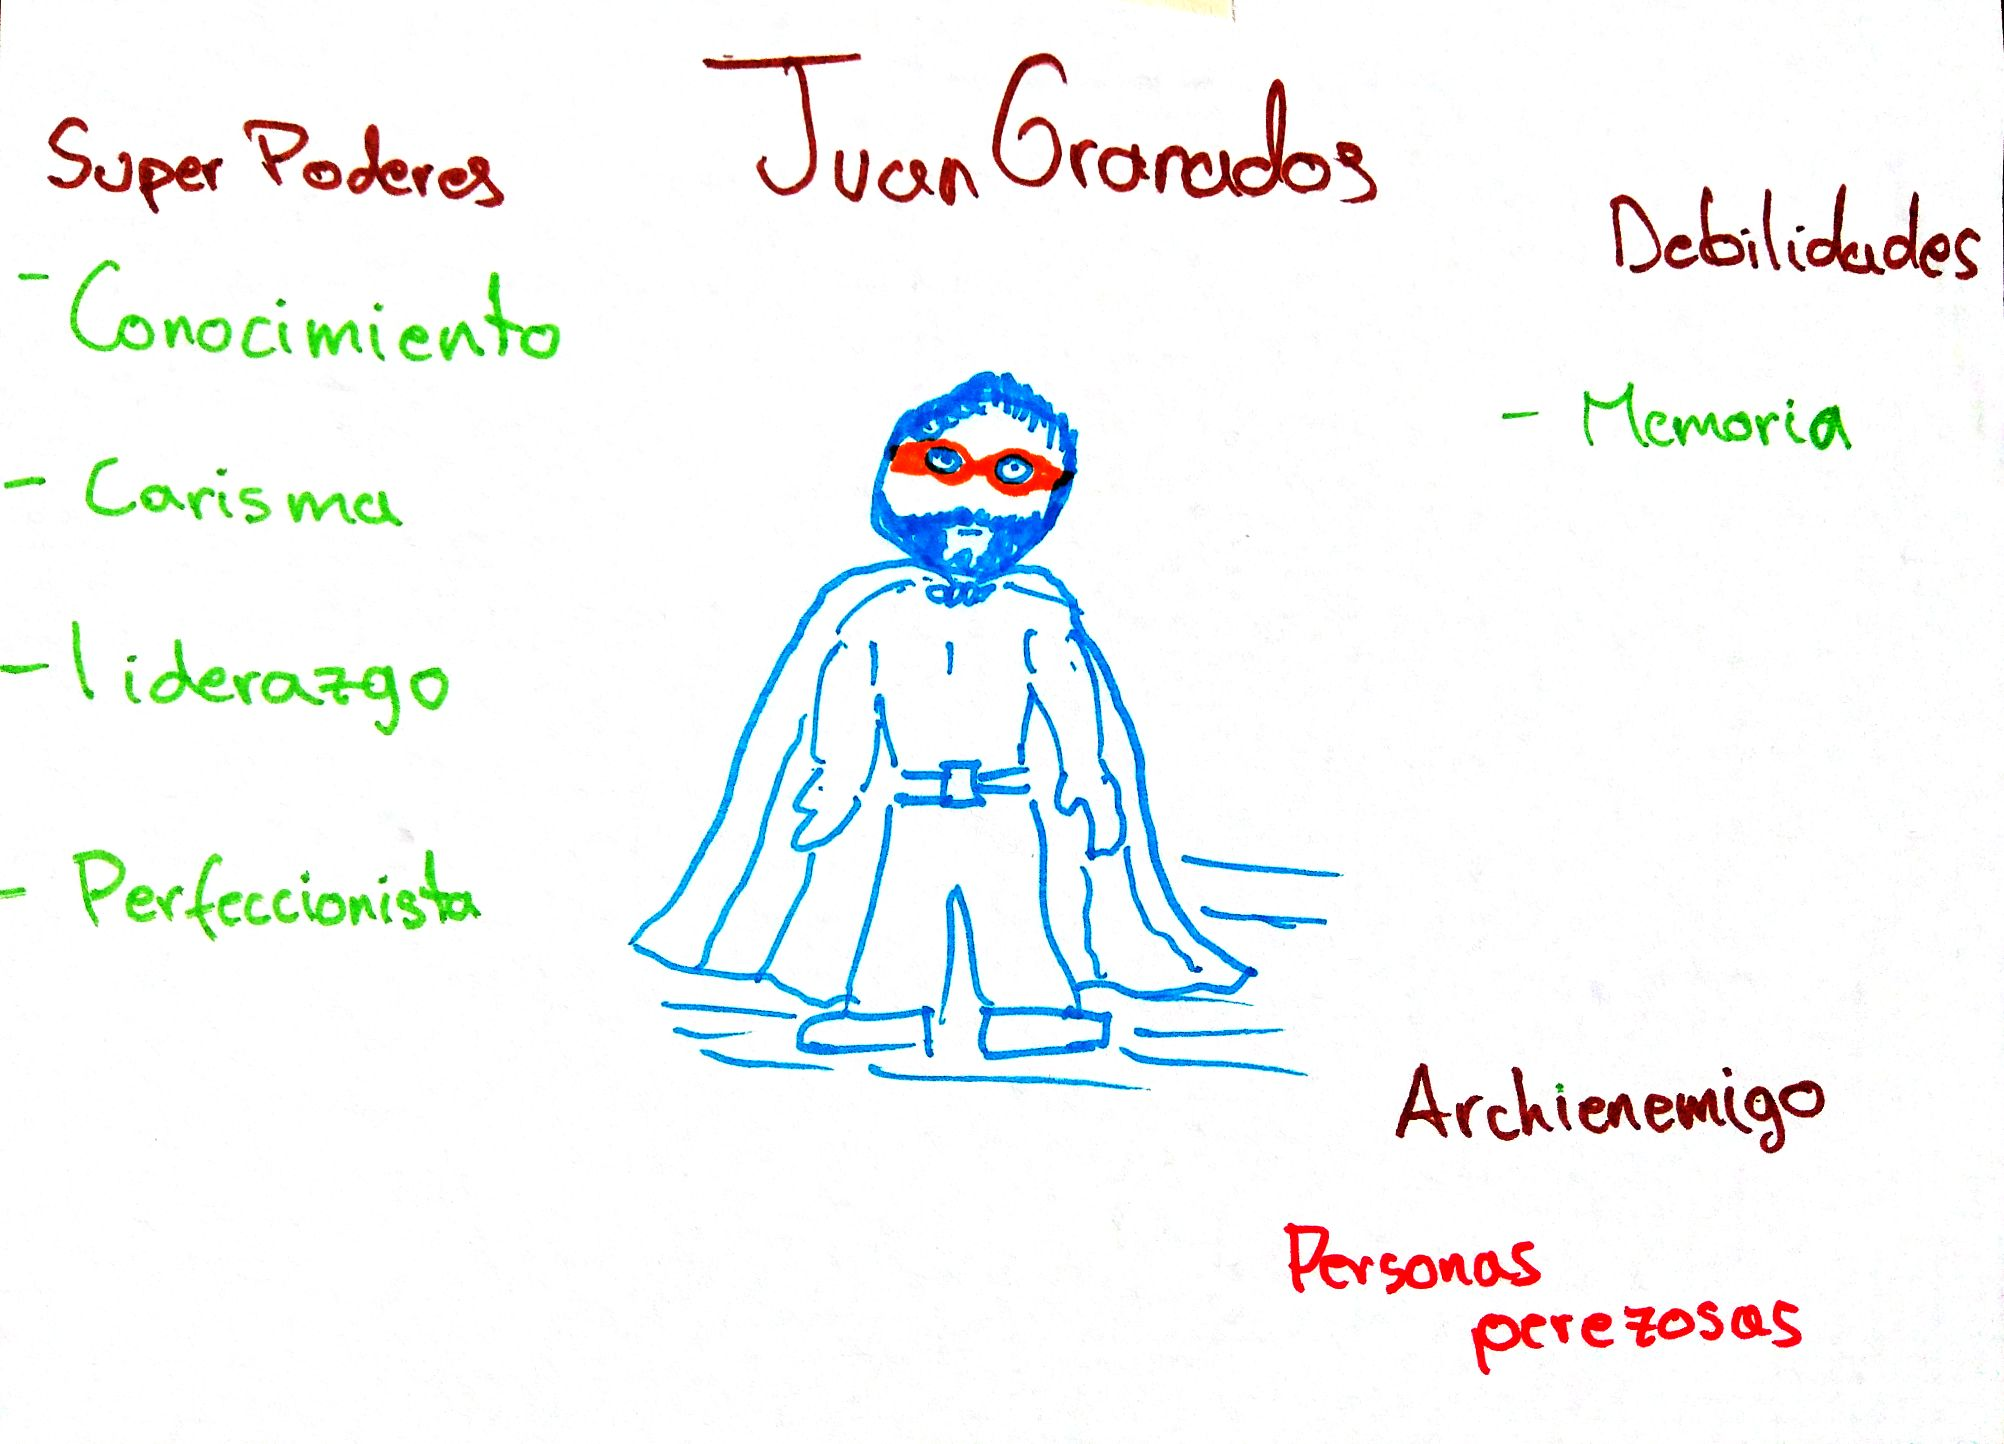 Juan Granados
Super Poderes
- Conocimiento
- Carisma
- liderazgo
- Perfeccionista
Debilidades
- Memoria
Archienemigo
Personas
perezosas